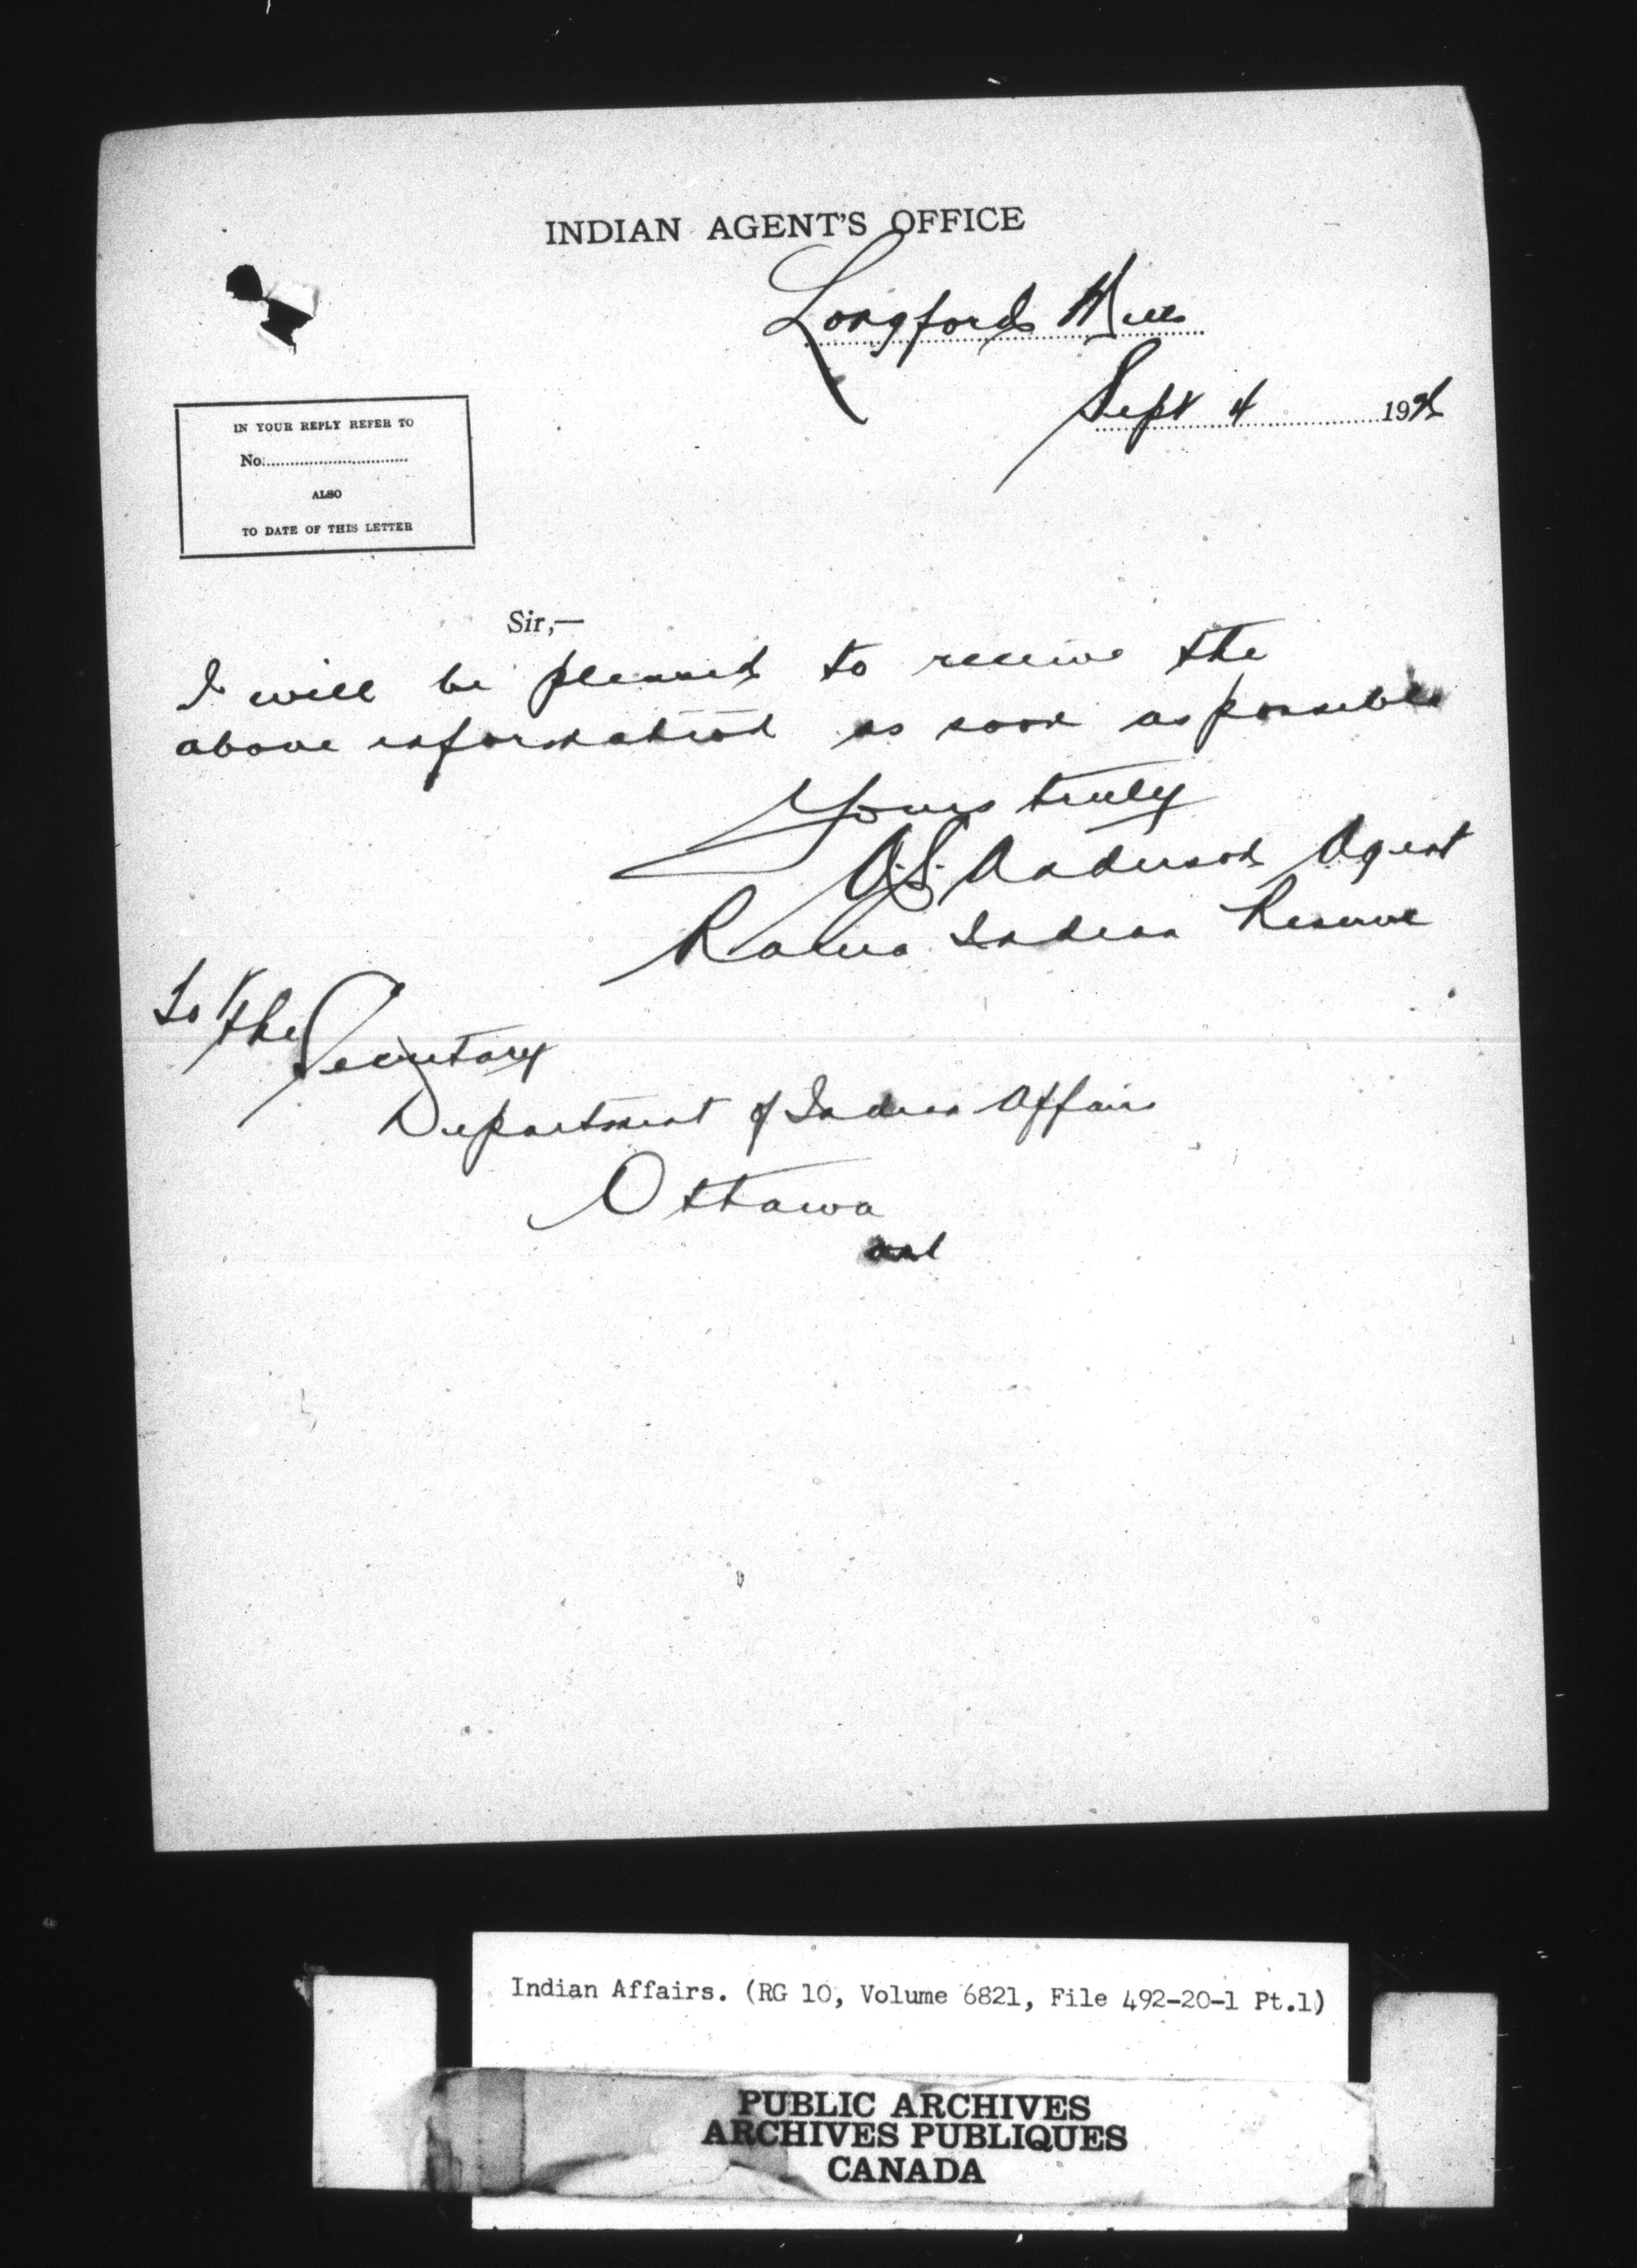 INDIAN AGENT'S OFFICE
Longford Mills
Sept 4 192
IN YOUR REPLY REFER TO
No.
ALSO
TO DATE OF THIS LETTER
Sir,—
I will be pleased to receive the
above information as soon as possible
Yours truly
A.S. Anderson Agent
Rama Indian Reserve
To the Secretary
Department of Indian Affairs
Ottawa
Ont
Indian Affairs. (RG 10, Volume 6821, File 492-20-1 Pt.1)
PUBLIC ARCHIVES
ARCHIVES PUBLIQUES
CANADA